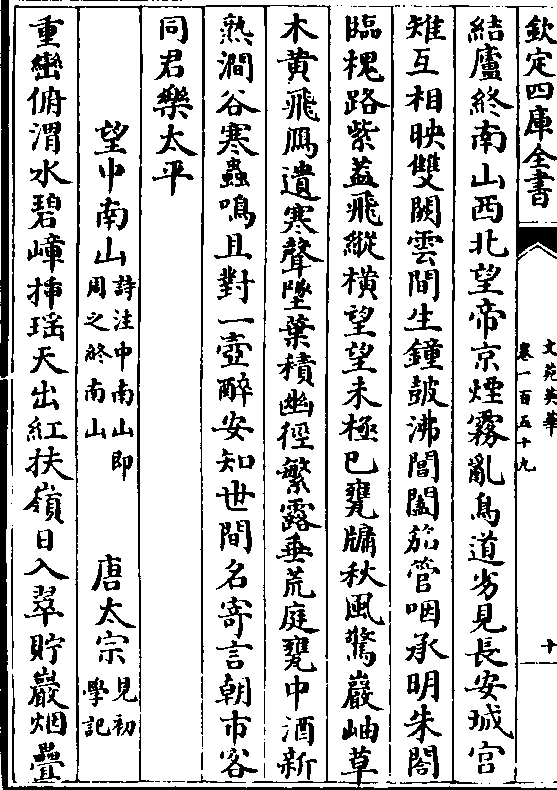 欽定四庫全書
文苑英華
卷一百五十九
十
結廬終南山西北望帝京煙霧亂鳥道劣見長安城宮
雉互相映雙闕雲間生鐘鼓沸閶闔笳管咽承明朱閣
臨槐路紫蓋飛縱橫望望未極已甕牖秋風驚巖岫草
木黃飛鴈遺寒聲墜葉積幽徑繁露垂荒庭甕中酒新
熟澗谷寒蟲鳴且對一壺醉安知世間名寄言朝市客
同君樂太平
望中南山
詩注中南山即
周之終南山
唐太宗
見初
學記
重巒俯渭水碧嶂挿瑶天出紅扶嶺日入翠貯巖烟疊